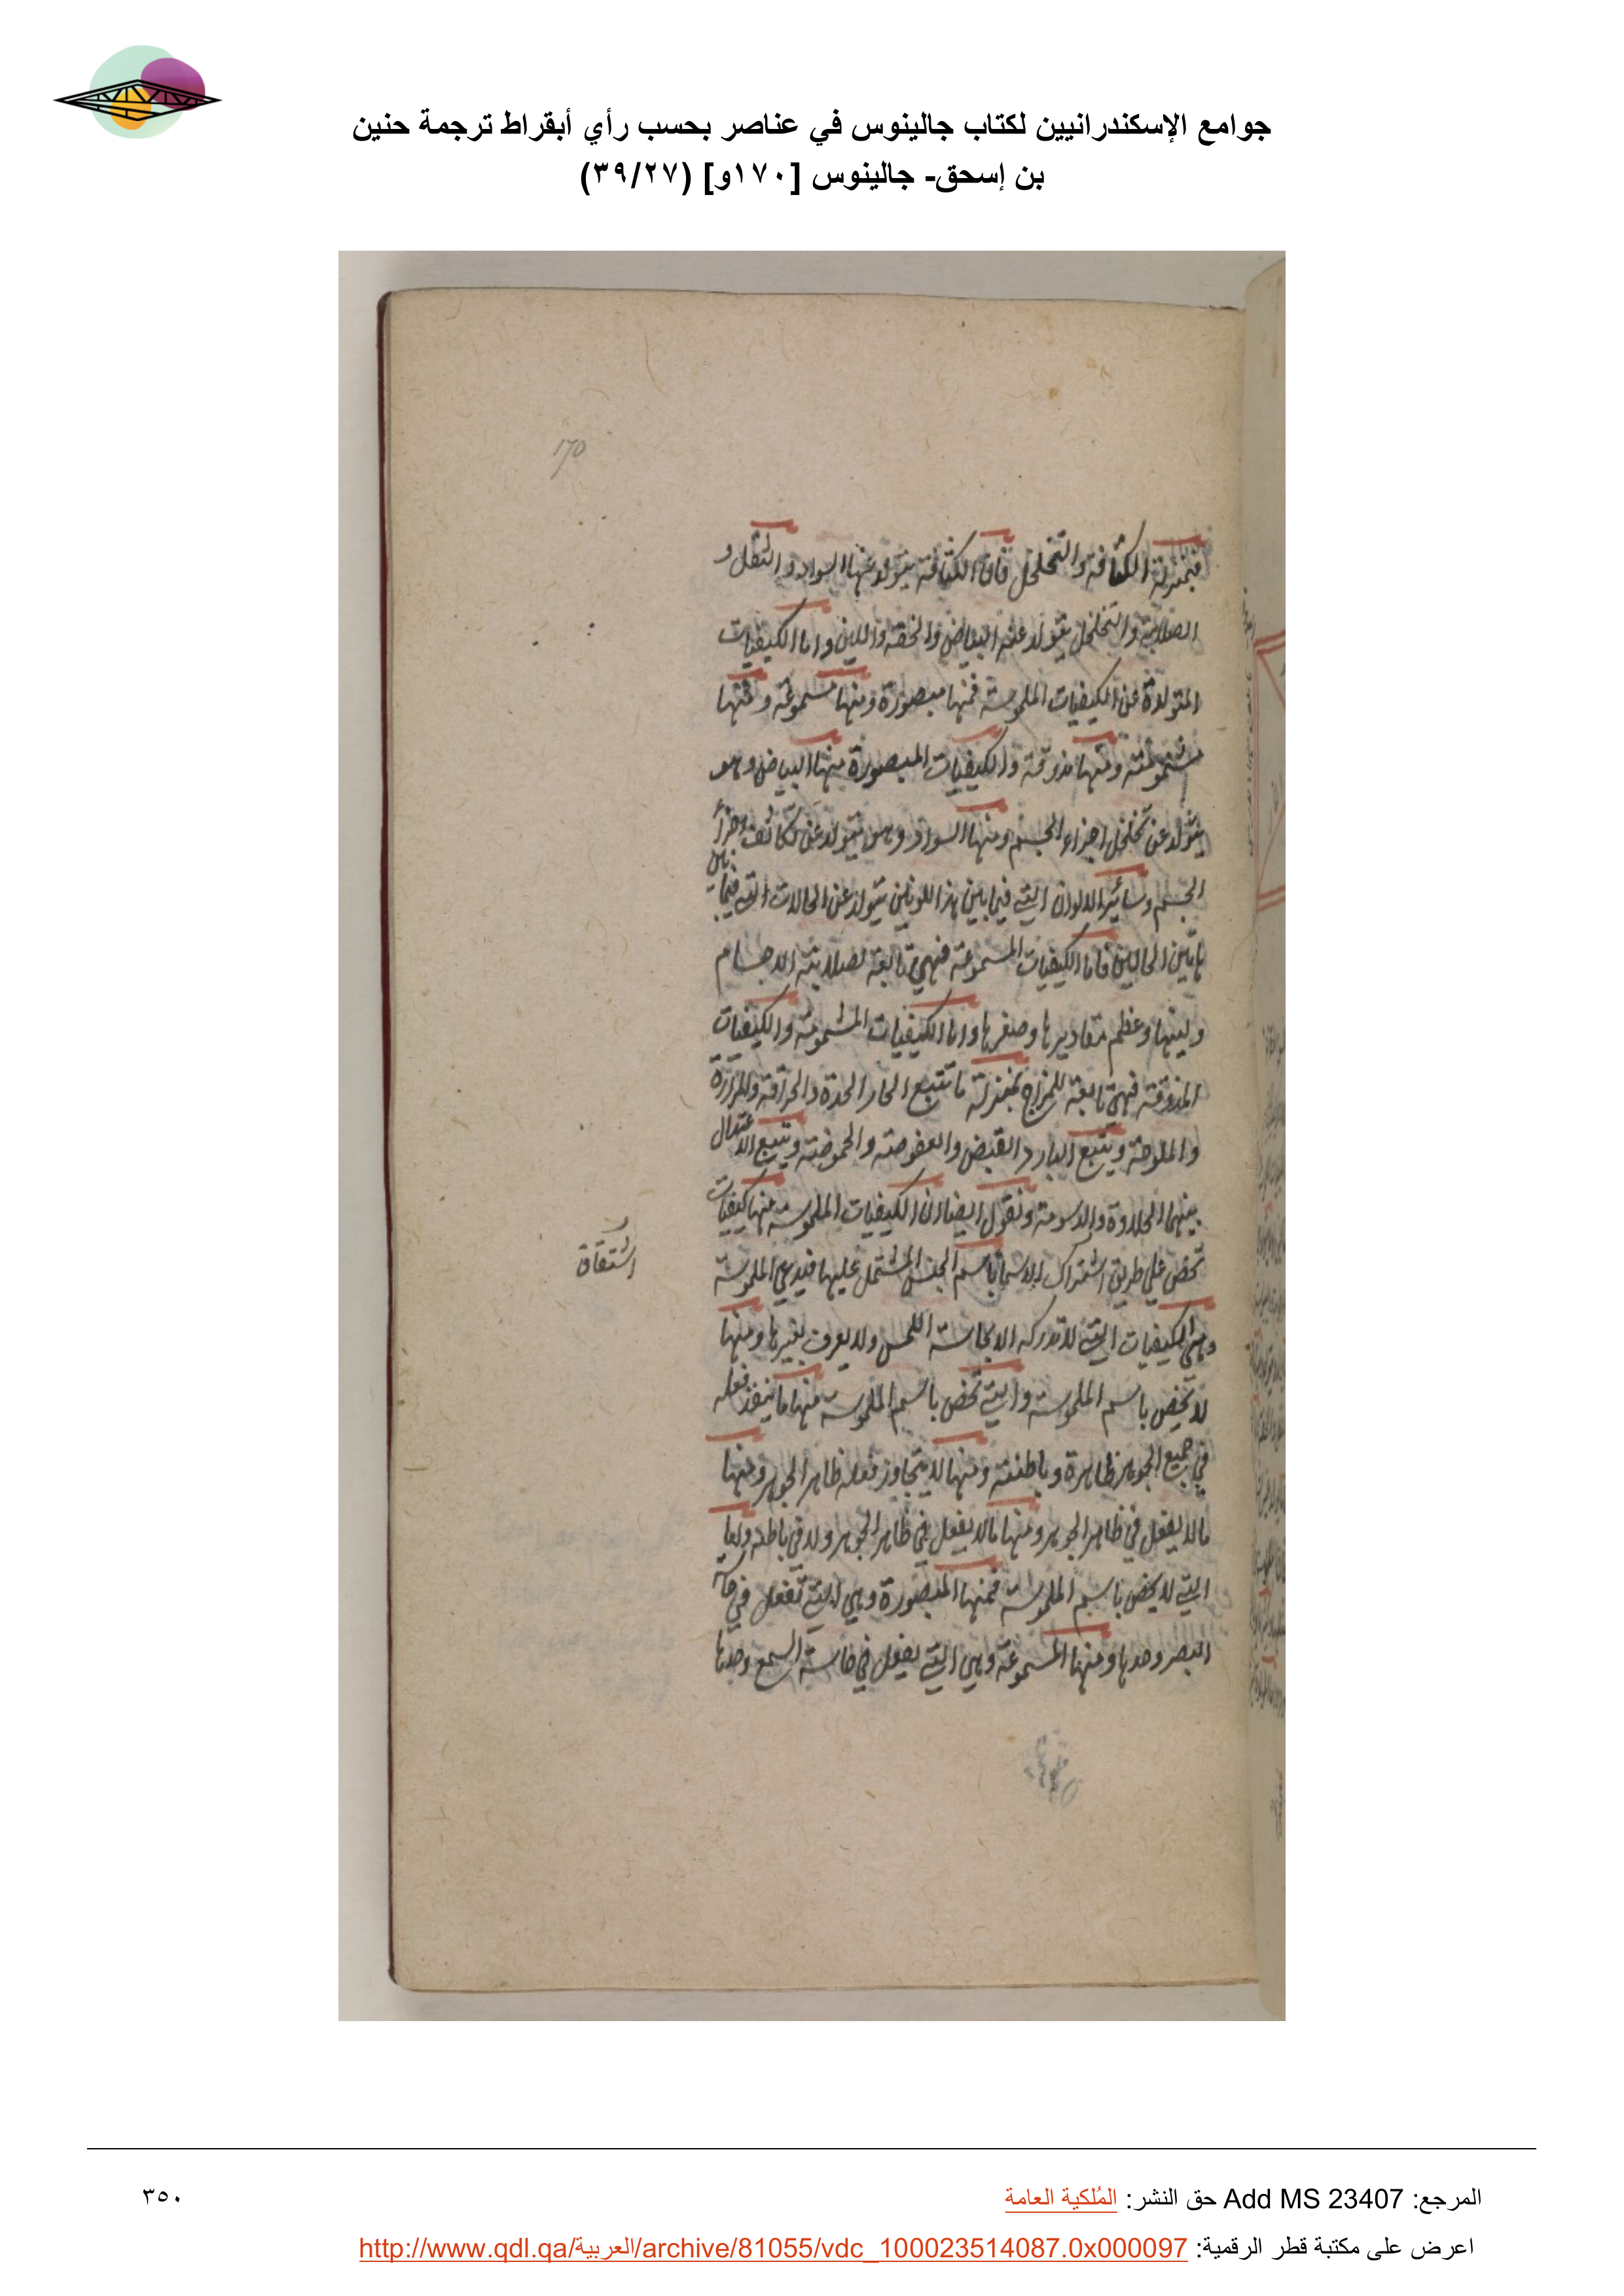 جوامع الإسكندرانيين لكتاب جالينوس في عناصر بحسب رأي أبقراط ترجمة حنين
بن إسحق- جالينوس [١٧٠و] (٣٩/٢٧)
170
فبمنزلة الكثافة والتخلخل فان الكثافة يتولد عنها السواد والثقل و
الصلابة والتخلخل يتولد عنه البياض والخفة واللين واما الكيفيات
المتولدة عن الكيفيات الملموسة فمنها مبصورة ومنها مسموعة ومنها
مشمومة ومنها مذوقة والكيفيات المبصورة منها البياض وهو
يتولد عن تخلخل اجزاء الجسم ومنها السواد وهو يتولد عن تكاثف اجزاء
الجسم وسائر الالوان التي فيما بين هذا اللونين يتولد عن الحالات التي فيما بين
هاتين الحالين فاما الكيفيات المسموعة فهي تابعة لصلابة الاجسام
ولينها وعظم مقاديرها وصغرها واما الكيفيات المشمومة والكيفيات
المذوقة فهي تابعة للمزاج بمنزلة ما تتبع الحار الحدة والحرافة والمرارة
والملوحة ويتبع البارد القبض والعفوصة والحموضة ويتبع الاعتدال
بينهما الحلاوة والدسومة ونقول ايضا ان الكيفيات الملموسة منها كيفيات
تخص على طريق اشتراك الاسم باسم الجنس المشتمل عليها فيدعى الملموسة
وهي الكيفيات التي لا تدركه الا بحاسة اللمس ولا يعرف بغيرها ومنها
لا تخص باسم الملموسة والتي تخص باسم الملموسة منها ما ينفذ فعله
في جميع الجوهر ظاهرة وباطنة ومنها لا يتجاوز فعله ظاهر الجوهر ومنها
ما لا يفعل في ظاهر الجوهر ومنها ما لا يفعل في ظاهر الجوهر ولا في باطنه واما
التي لا يخص باسم الملموسة فمنها المبصورة وهي التي تفعل في حاسة
البصر وحدها ومنها المسموعة وهي التي يفعل في حاسة السمع وحدها
اشتقاق
المرجع: Add MS 23407 حق النشر: المُلكية العامة
٣٥٠
اعرض على مكتبة قطر الرقمية: http://www.qdl.qa/العربية/archive/81055/vdc_100023514087.0x000097